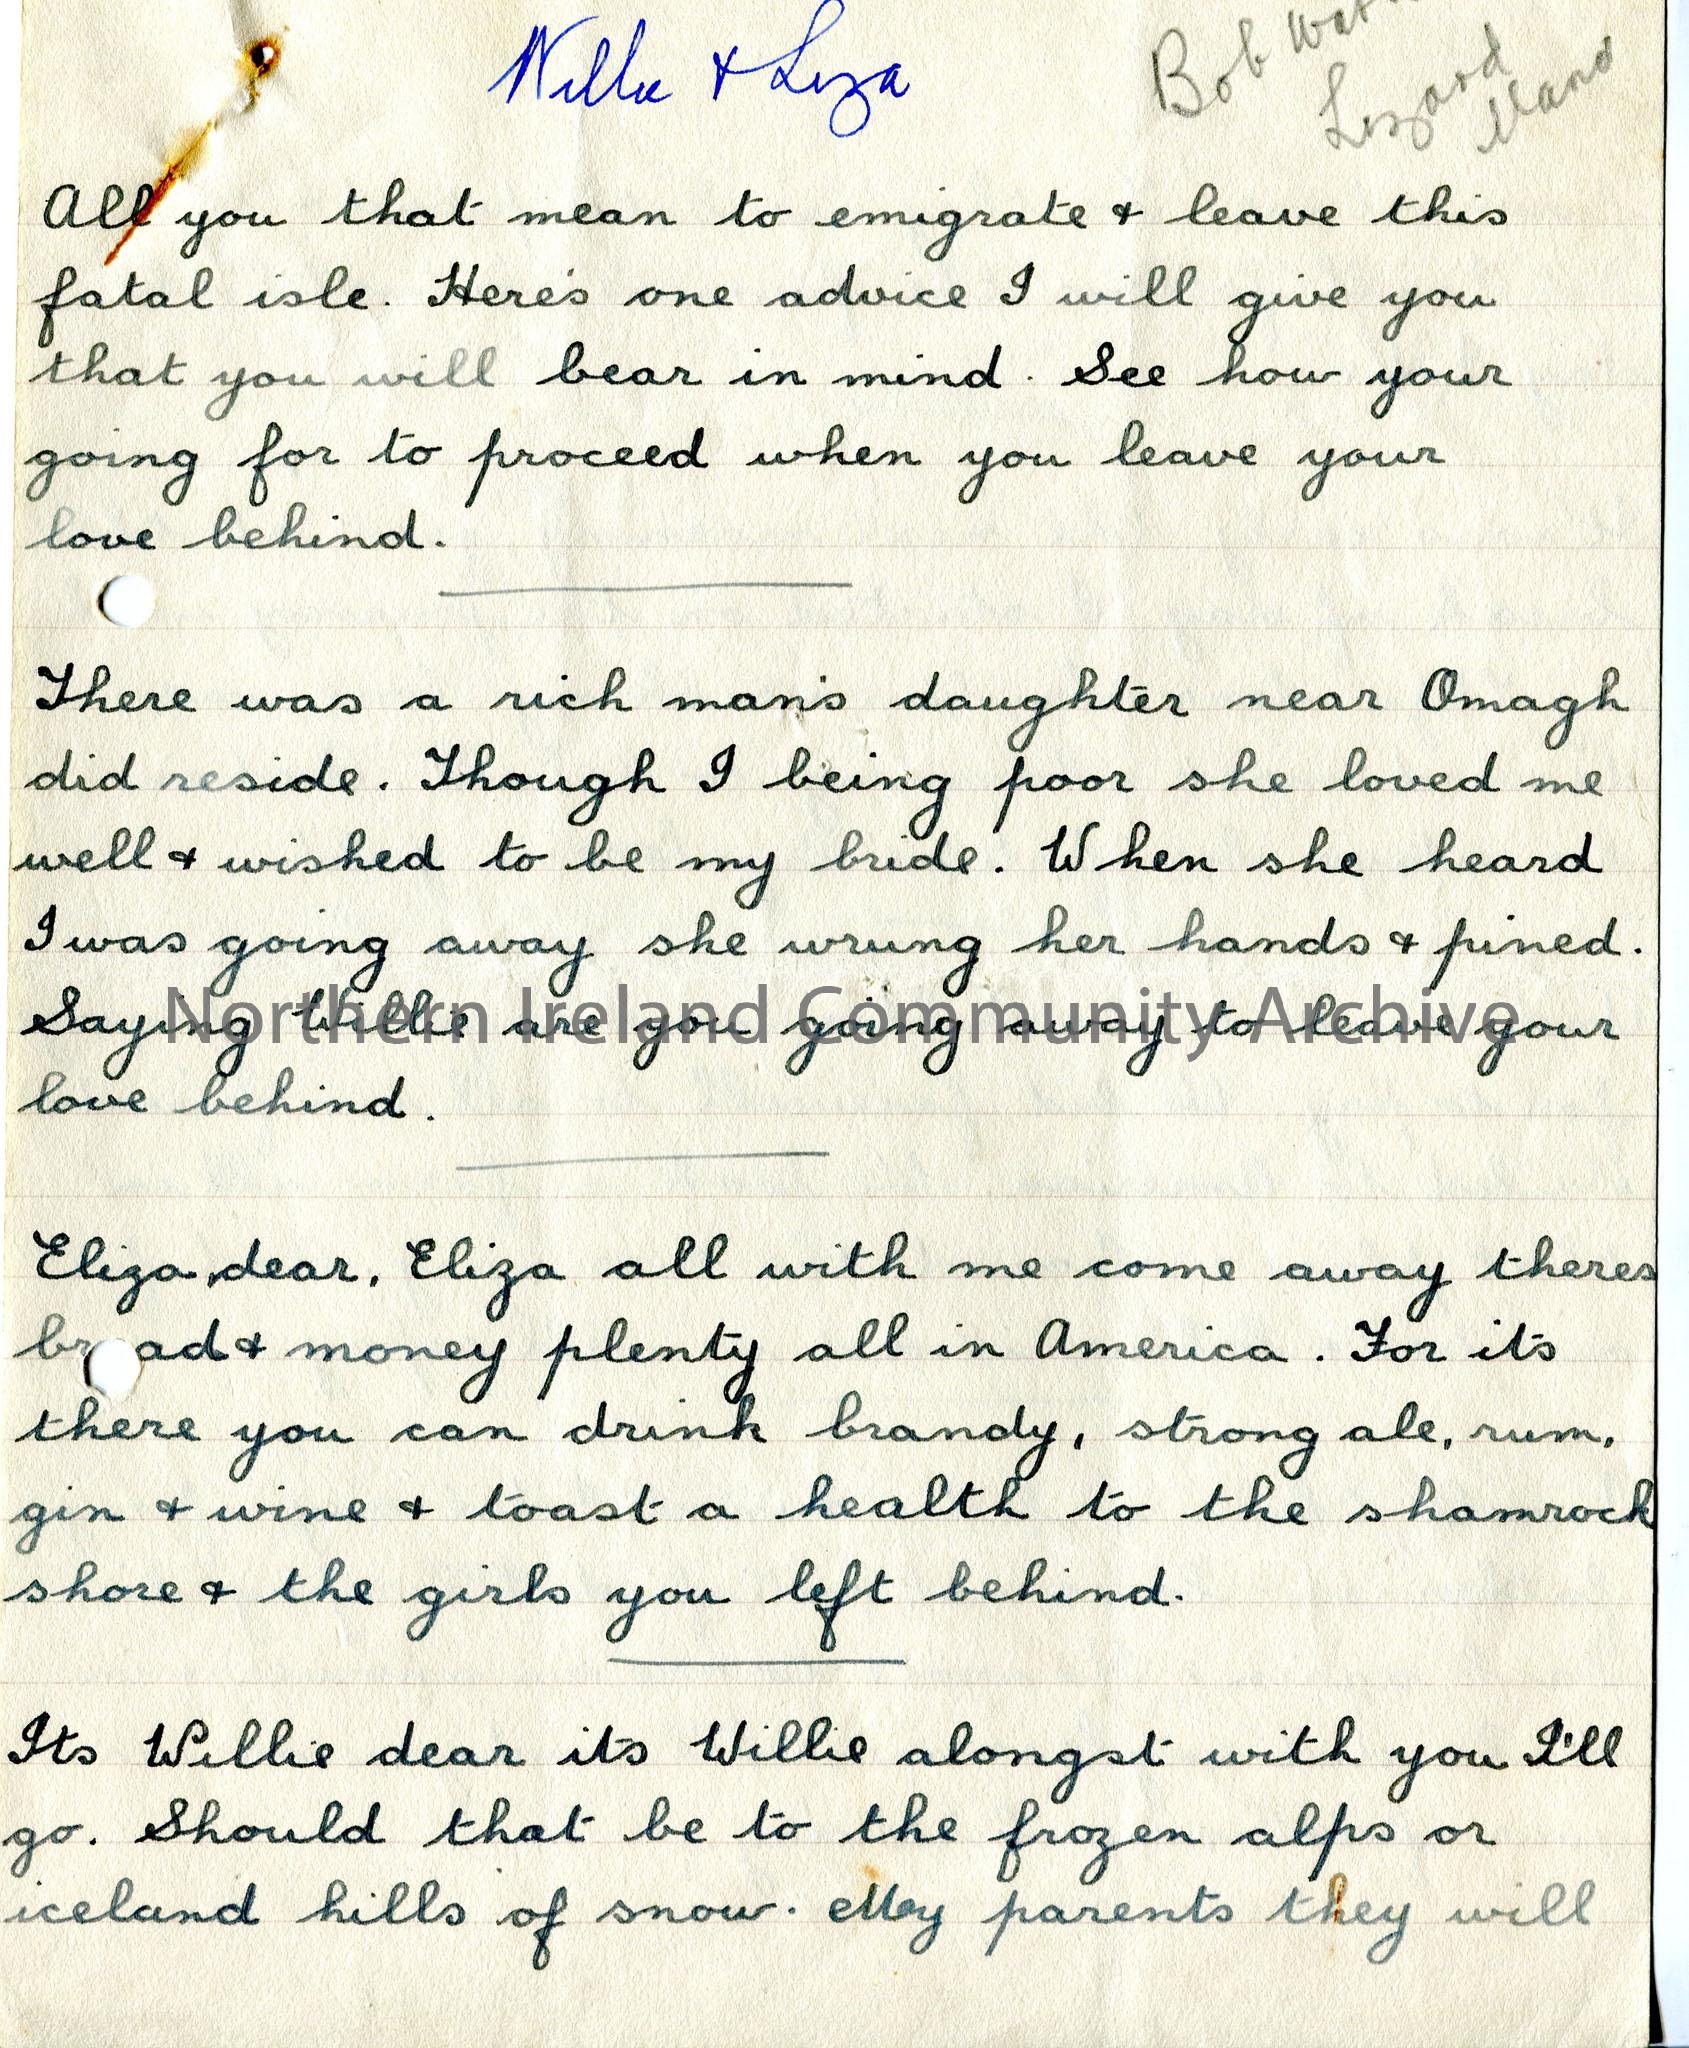 Willie & Liza
Bob
Lizard
Manor
All you that mean to emigrate & leave this
fatal isle. Here's one advice I will give you
that you will bear in mind. See how your
going for to proceed when you leave your
love behind.
There was a rich man's daughter near Omagh
did reside. Though I being poor she loved me
well & wished to be my bride. When she heard
I was going away she wrung her hands & pined.
Saying Willie are you going away to leave your
love behind.
Northern Ireland Community Archive
Eliza, dear, Eliza all with me come away theres
br ad & money plenty all in America. For its
there you can drink brandy, strong ale, rum,
gin & wine & toast a health to the shamrock
shore & the girls you left behind.
Its Willie dear its Willie alongst with you I'll
go. Should that be to the frozen alps or
iceland hills of snow. My parents they will